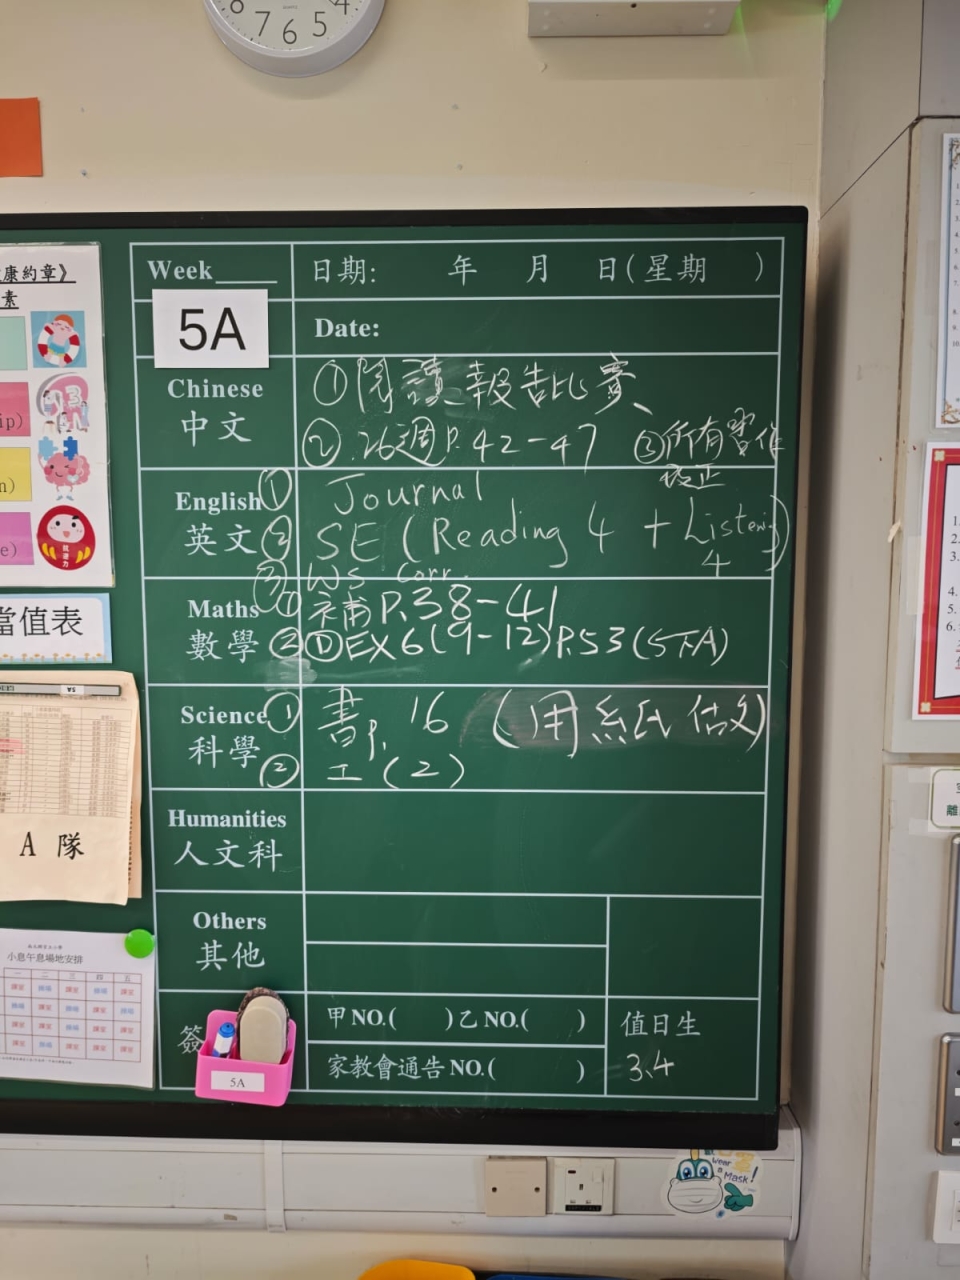 8 7 6 5 4
QUARTZ
康約章》
素
ip)
n)
e)
當值表
5A
A 隊
小息午息場地安排
一 二 三 四 五
Week
日期: 年 月 日(星期 )
5A
Date:
Chinese
中文
①閱讀報告比賽、
②.26週P.42-47 ③所有習作
改正
English
英文
① Journal
② SE (Reading 4 + Listening
4)
③ WS Corr.
Maths
數學
①補P.38-41
②ⒹEX6(9-12)P.53(STA)
Science
科學
①書p.16 (用紙做)
②工(2)
Humanities
人文科
Others
其他
簽
甲NO.( )乙NO.( )
家教會通告NO.( )
值日生
3、4
5A
wear
a
Mask!
離